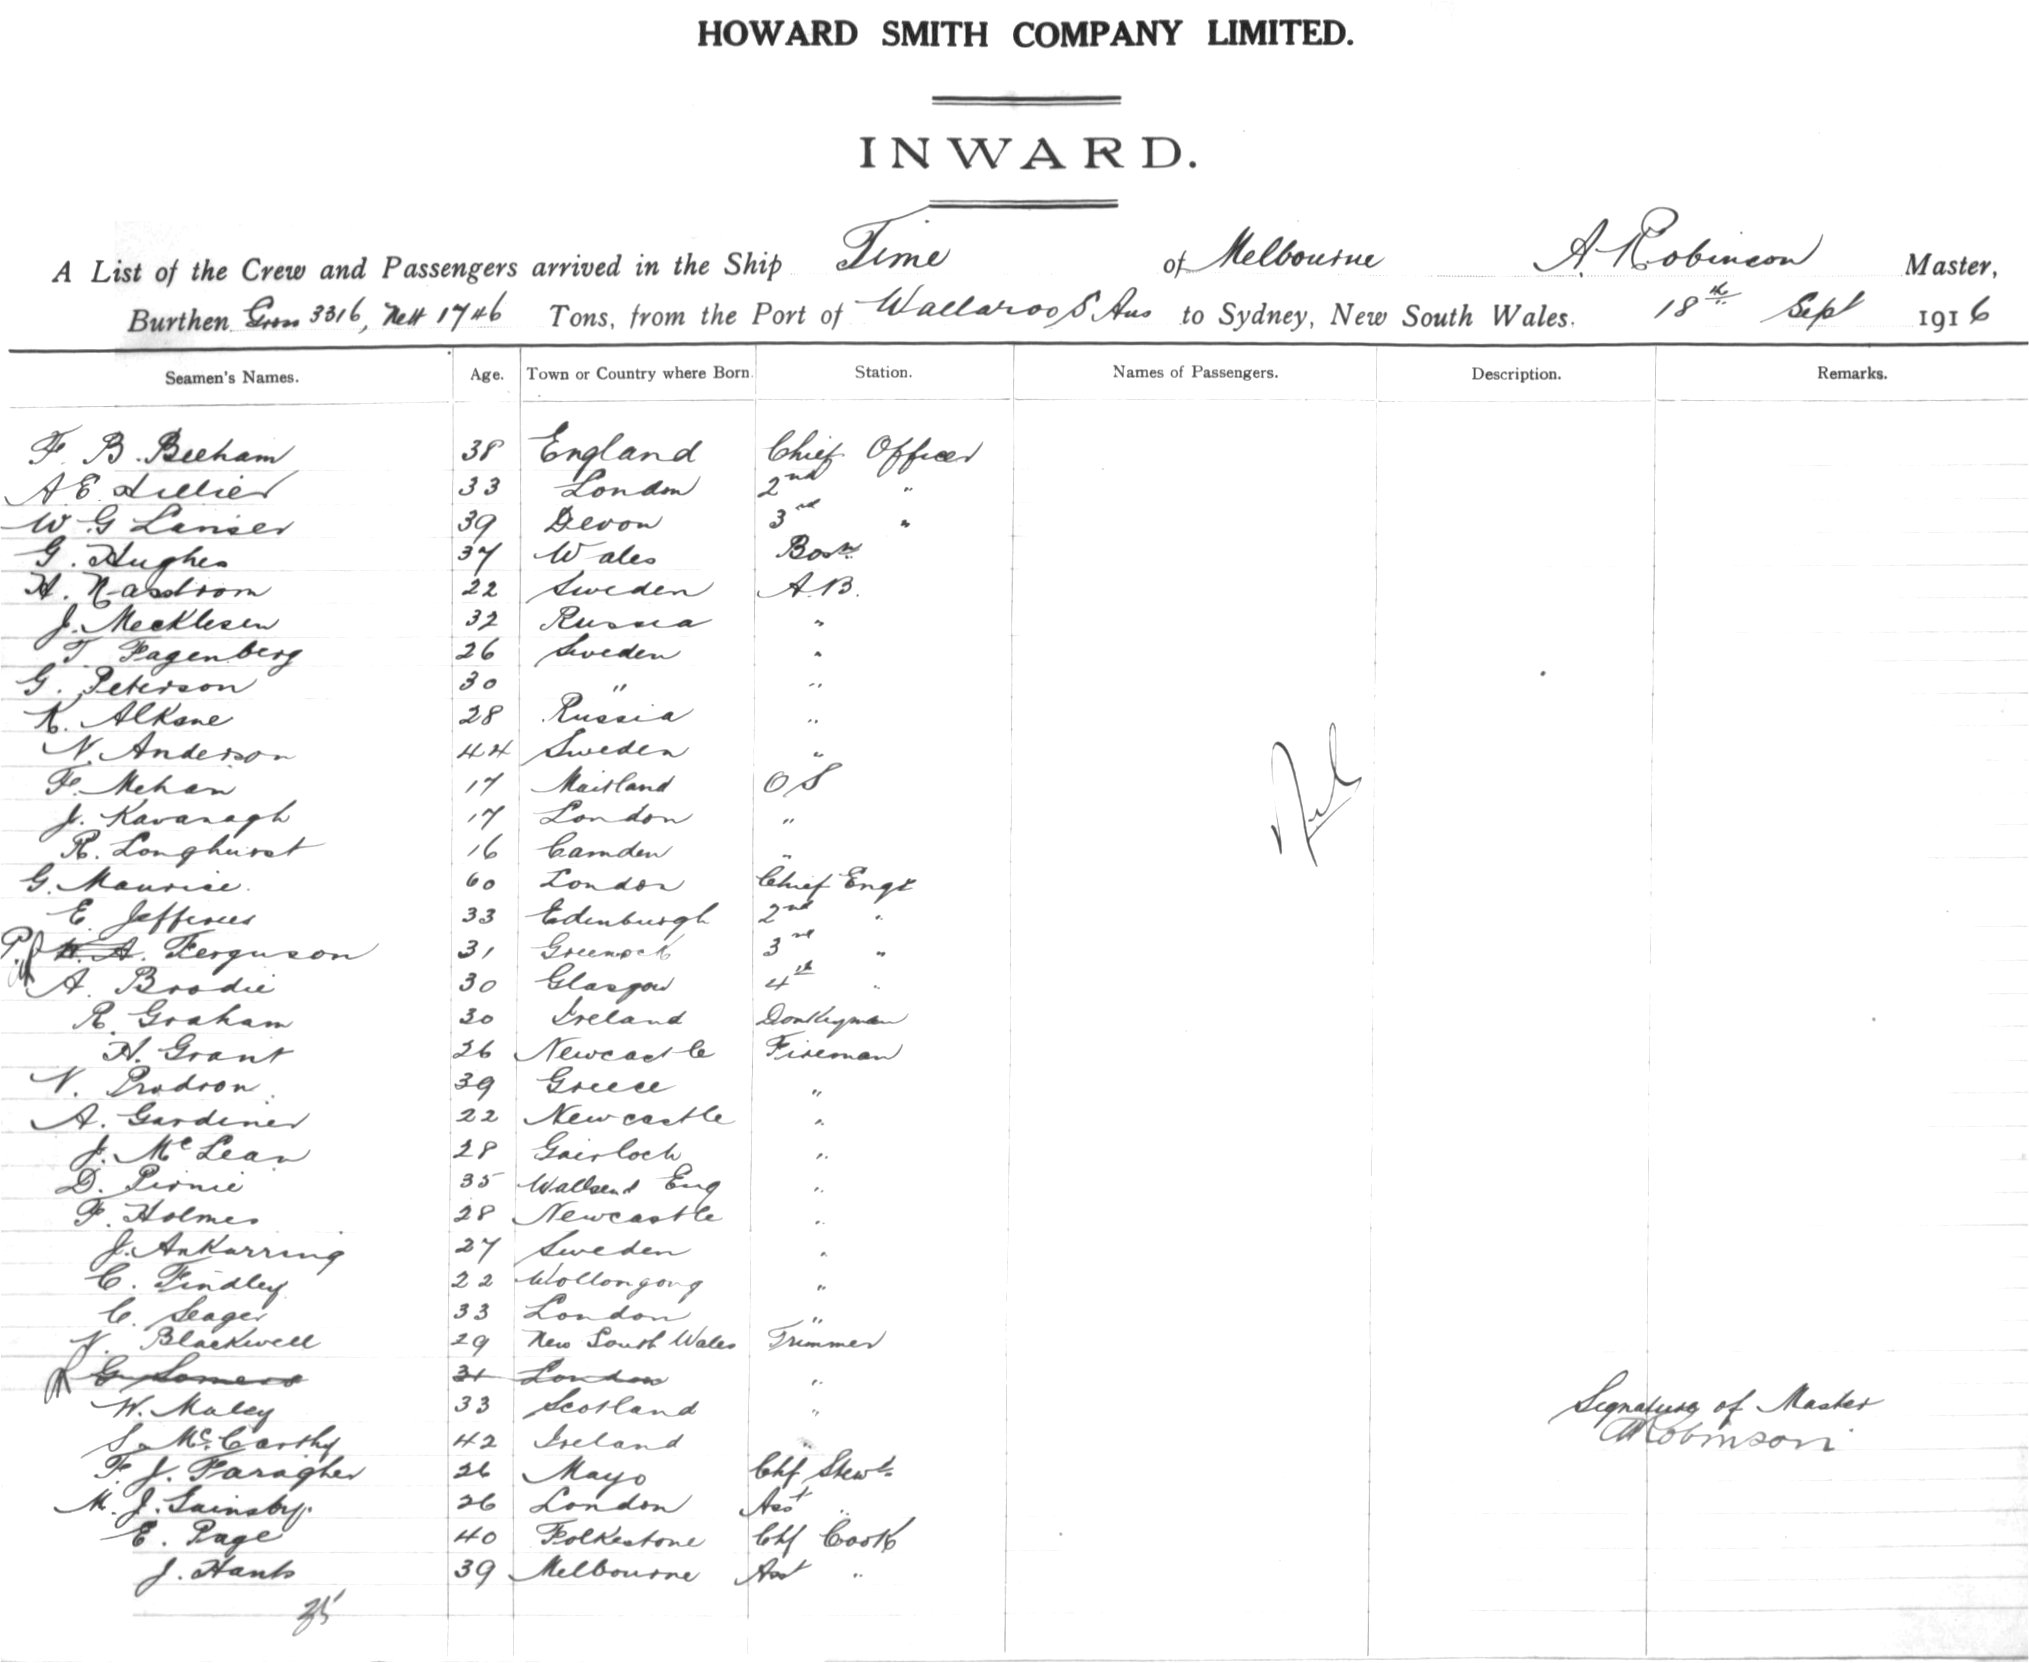 HOWARD SMITH COMPANY LIMITED.
INWARD.
A List of the Crew and Passengers arrived in the Ship Time of Melbourne A Robinson Master,
Burthen Gross 3316, Nett 1746 Tons, from the Port of Wallaroo S Aus to Sydney, New South Wales. 18th Sept 1916
Seamen's Names. Age. Town or Country where Born. Station. Names of Passengers. Description. Remarks.
F. B. Beeham 38 England Chief Officer
A E Hillier 33 London 2nd "
W. G Lanser 39 Devon 3rd "
G. Hughes 37 Wales Bosn
H. Nasstrom 22 Sweden A.B.
J. Mecklesen 32 Russia "
T Fagenberg 26 Sweden "
G. Peterson 30 " "
K. Alksne 28 Russia "
N. Anderson 44 Sweden "
F. Mehan 17 Maitland O S
J. Kavanagh 17 London "
R. Longhurst 16 Camden "
G. Maurice. 60 London Chief Engr
E. Jefferies 33 Edinburgh 2nd "
P. Ferguson 31 Greenock 3rd "
A. Brodie 30 Glasgow 4th "
R. Graham 30 Ireland Donkeyman
H. Grant 26 Newcastle Fireman
N. Prodron 39 Greece "
A. Gardiner 22 Newcastle "
J. McLean 28 Gairloch "
D. Pirnie 35 Wallsend Eng "
F. Holmes 28 Newcastle "
J. Ankarring 27 Sweden "
C. Findley 22 Wollongong "
C. Seager 33 London "
N. Blackwell 29 New South Wales Trimmer
G Somers 31 London "
W. Maley 33 Scotland "
S. McCarthy 42 Ireland "
F. J. Faragher 26 Mayo Chf Stewd
M. J. Sainsby. 26 London Asst "
E. Page 40 Folkestone Chf Cook
J. Hanks 39 Melbourne Asst "
35
Nil
Signature of Master
A Robinson